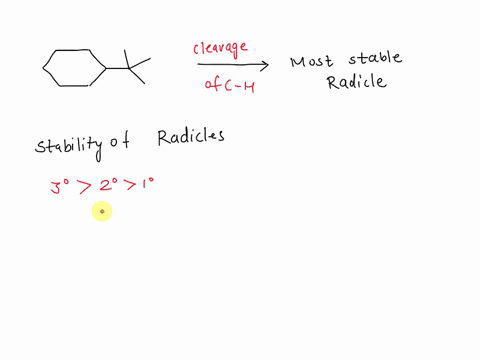 cleavage
of C-H
Most stable
Radicle
Stability of Radicles
3° > 2° > 1°